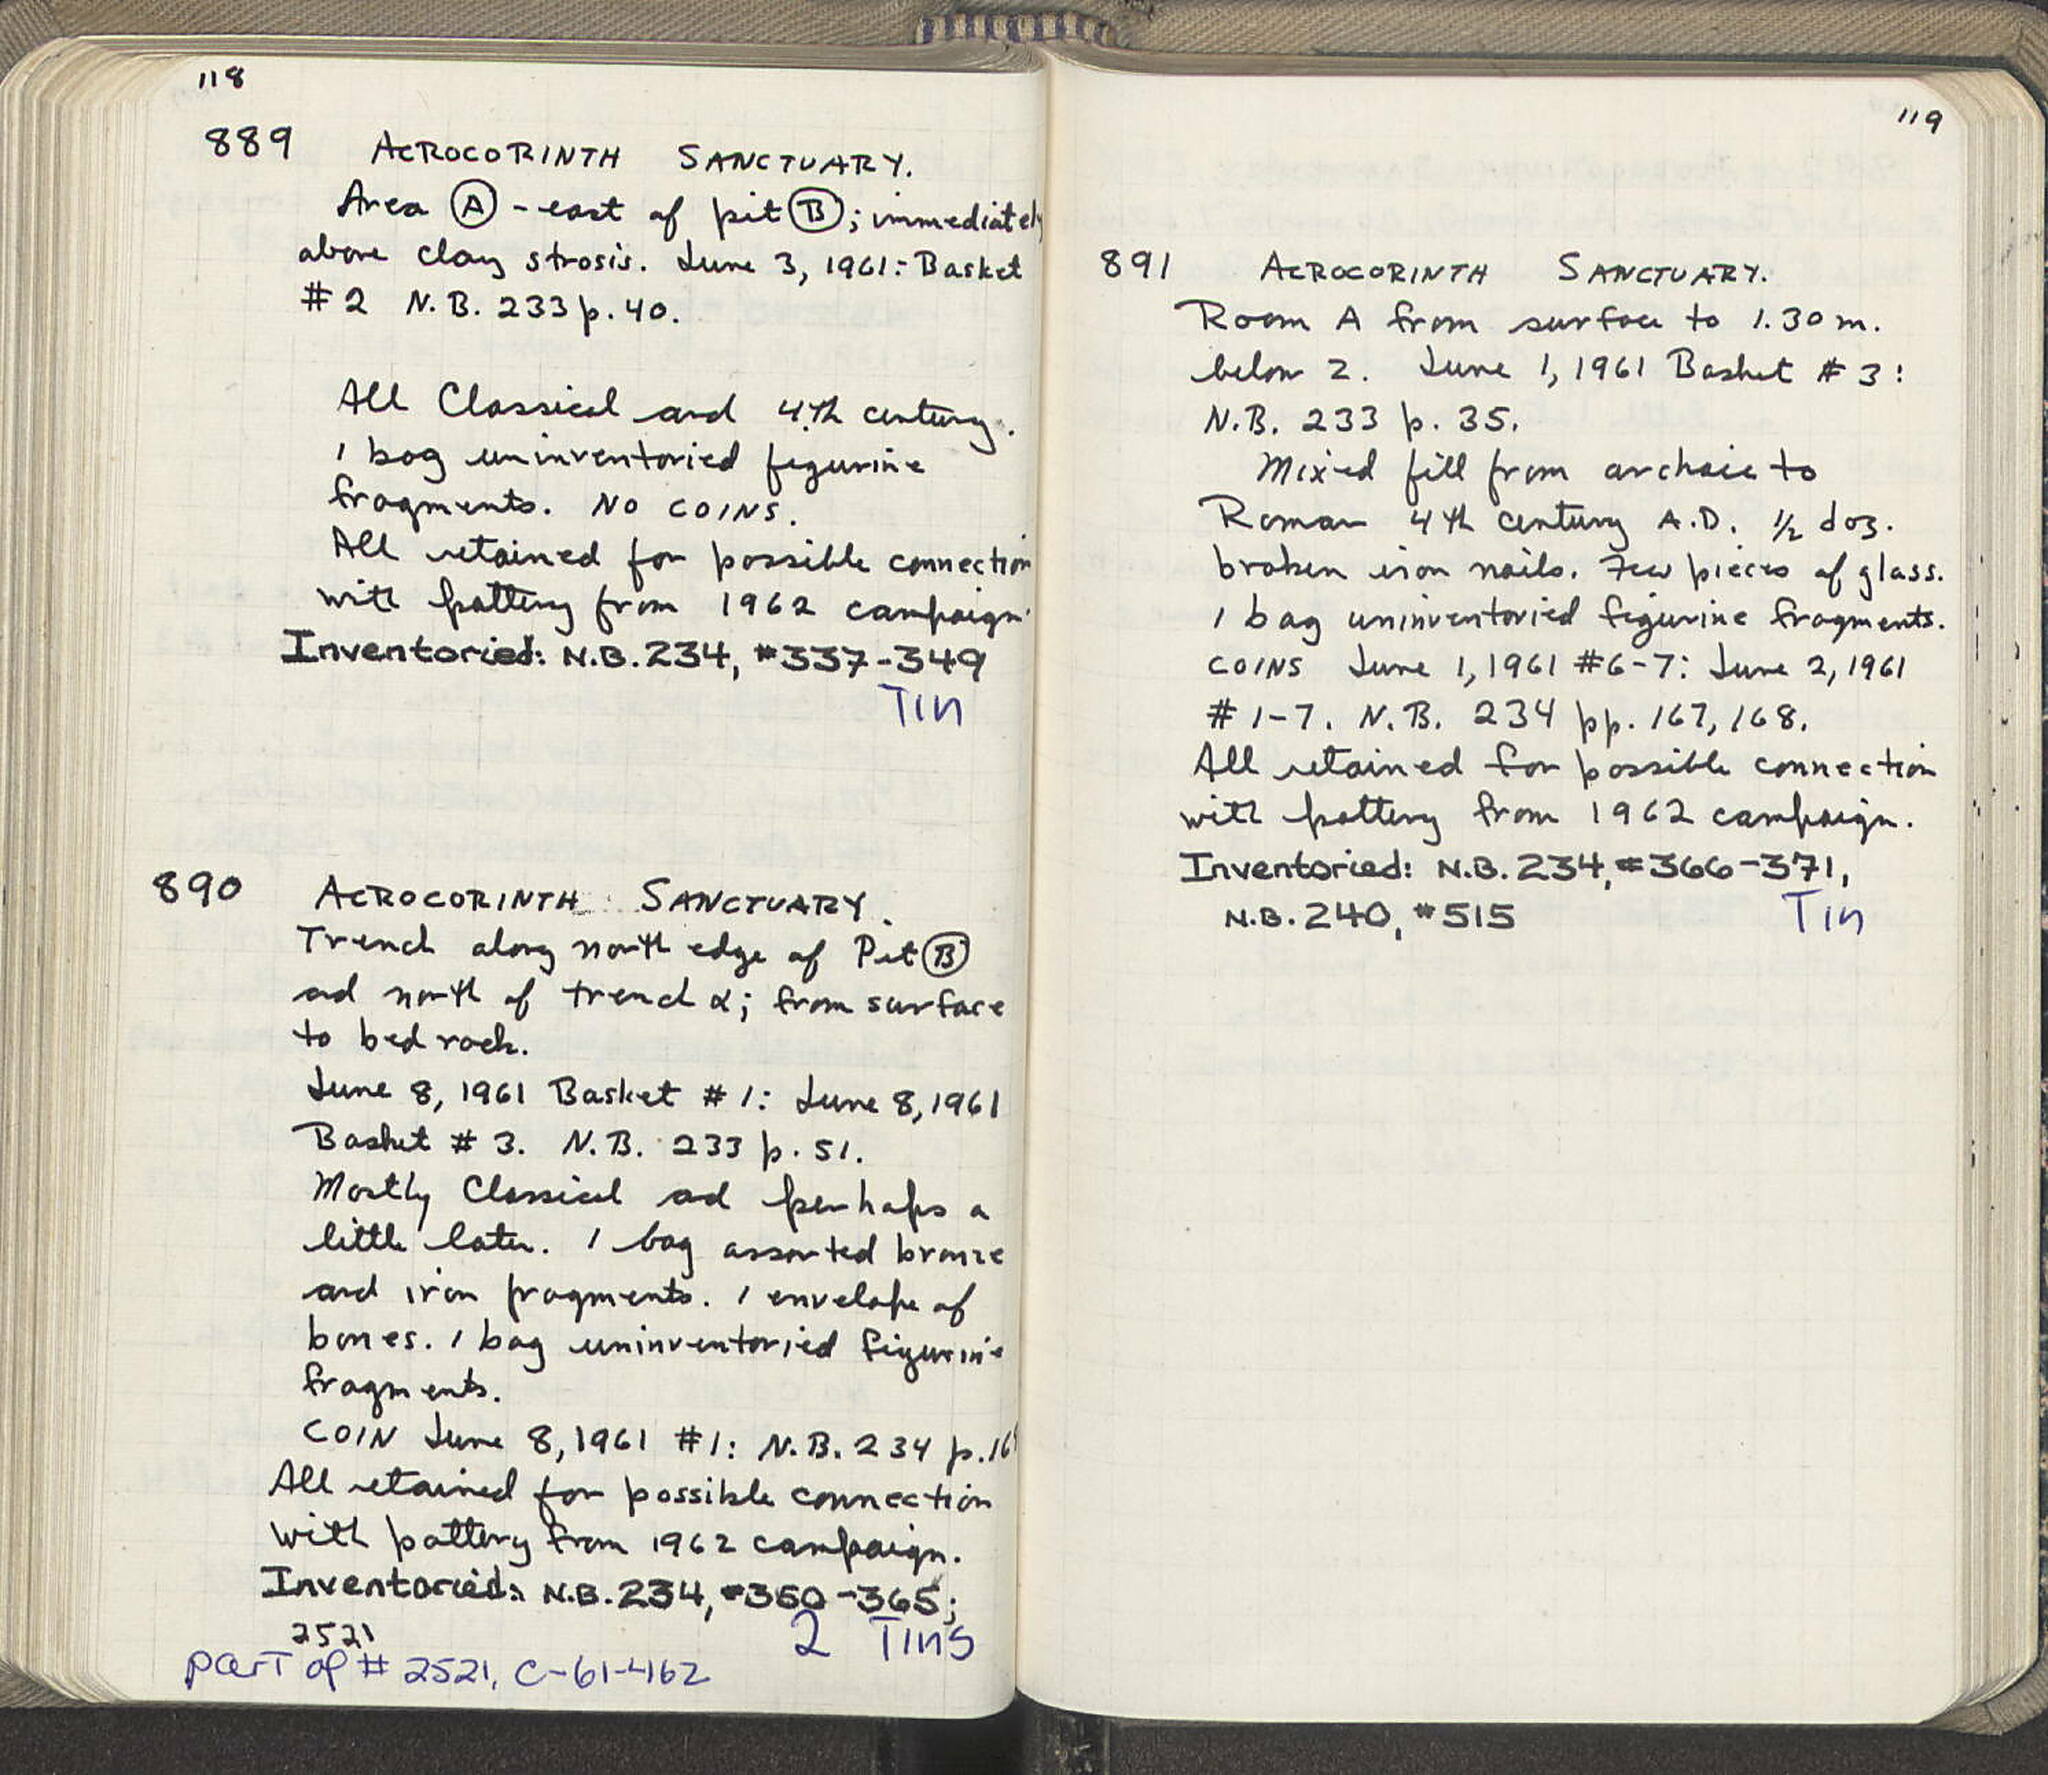 118
889 ACROCORINTH SANCTUARY.
Area Ⓐ - east of pit Ⓑ; immediately
above clay strosis. June 3, 1961: Basket
# 2 N.B. 233 p. 40.
All Classical and 4th century.
1 bag uninventoried figurine
fragments. NO COINS.
All retained for possible connection
with pottery from 1962 campaign.
Inventoried: N.B. 234, #337-349
Tin
890 ACROCORINTH SANCTUARY.
Trench along north edge of Pit Ⓑ
and north of trench α; from surface
to bed rock.
June 8, 1961 Basket # 1: June 8, 1961
Basket # 3. N.B. 233 p. 51.
Mostly Classical and perhaps a
little later. 1 bag assorted bronze
and iron fragments. 1 envelope of
bones. 1 bag uninventoried figurine
fragments.
COIN June 8, 1961 #1: N.B. 234 p.
All retained for possible connection
with pottery from 1962 campaign.
Inventoried: N.B. 234, #350-365;
2521
2 Tins
part of # 2521, C-61-462
119
891 ACROCORINTH SANCTUARY.
Room A from surface to 1.30 m.
below 2. June 1, 1961 Basket # 3:
N.B. 233 p. 35.
Mixed fill from archaic to
Roman 4th century A.D. ½ doz.
broken iron nails. Few pieces of glass.
1 bag uninventoried figurine fragments.
COINS June 1, 1961 #6-7: June 2, 1961
# 1-7. N.B. 234 pp. 167, 168.
All retained for possible connection
with pottery from 1962 campaign.
Inventoried: N.B. 234, #366-371,
N.B. 240, #515
Tin